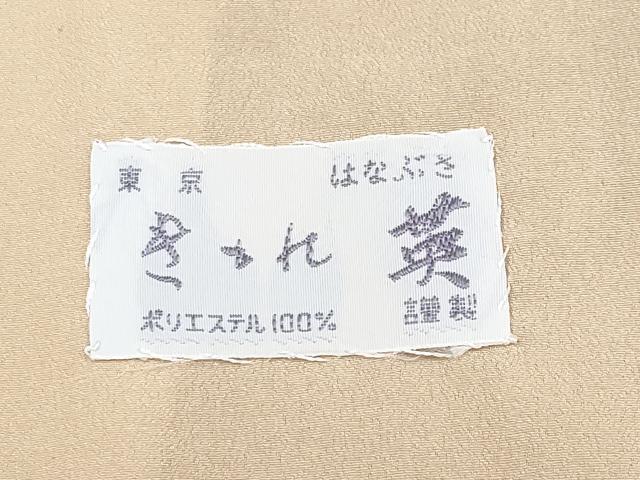 東京
きぬたや
はなぶさ
英
謹製
ポリエステル100%